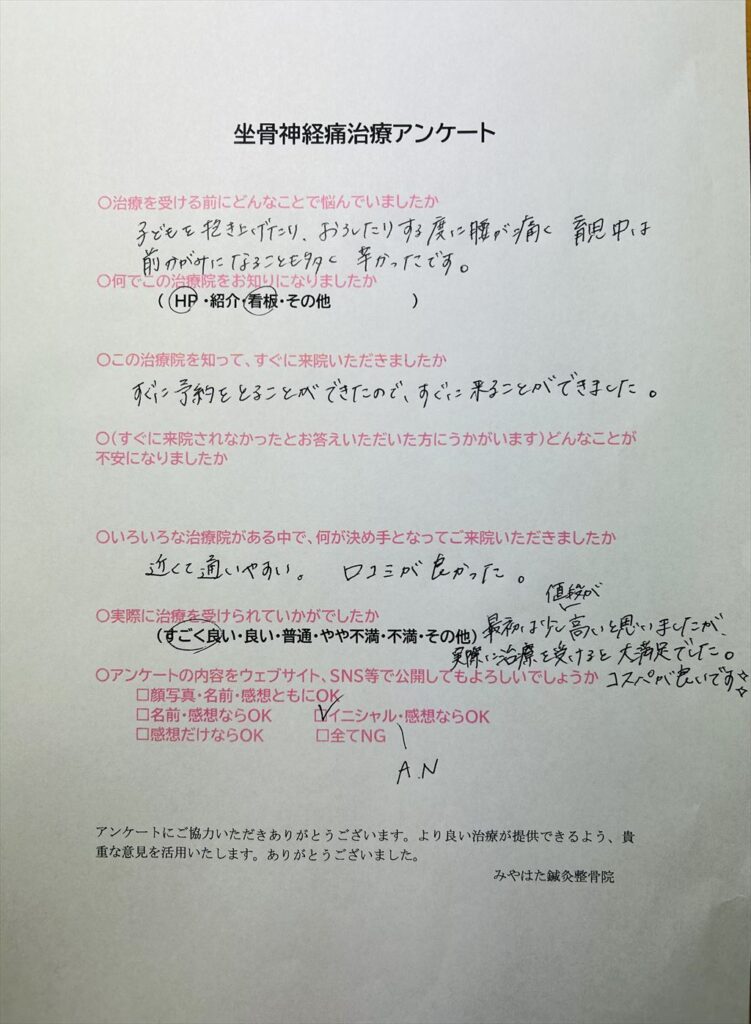 坐骨神経痛治療アンケート
○治療を受ける前にどんなことで悩んでいましたか
子どもを抱き上げたり、おろしたりする度に腰が痛く 育児中は
前かがみになることも多く 辛かったです。
○何でこの治療院をお知りになりましたか
( HP・紹介・看板・その他 )
○この治療院を知って、すぐに来院いただきましたか
すぐに予約をとることができたので、すぐに来ることができました。
○(すぐに来院されなかったとお答えいただいた方にうかがいます)どんなことが
不安になりましたか
○いろいろな治療院がある中で、何が決め手となってご来院いただきましたか
近くて通いやすい。 口コミが良かった。
○実際に治療を受けられていかがでしたか
(すごく良い・良い・普通・やや不満・不満・その他)
値段が
最初は少し高いと思いましたが、
実際に治療を受けると大満足でした。
コスパが良いです
○アンケートの内容をウェブサイト、SNS等で公開してもよろしいでしょうか
□顔写真・名前・感想ともにOK
□名前・感想ならOK ☑イニシャル・感想ならOK
□感想だけならOK □全てNG
A.N
アンケートにご協力いただきありがとうございます。より良い治療が提供できるよう、貴
重な意見を活用いたします。ありがとうございました。
みやはた鍼灸整骨院